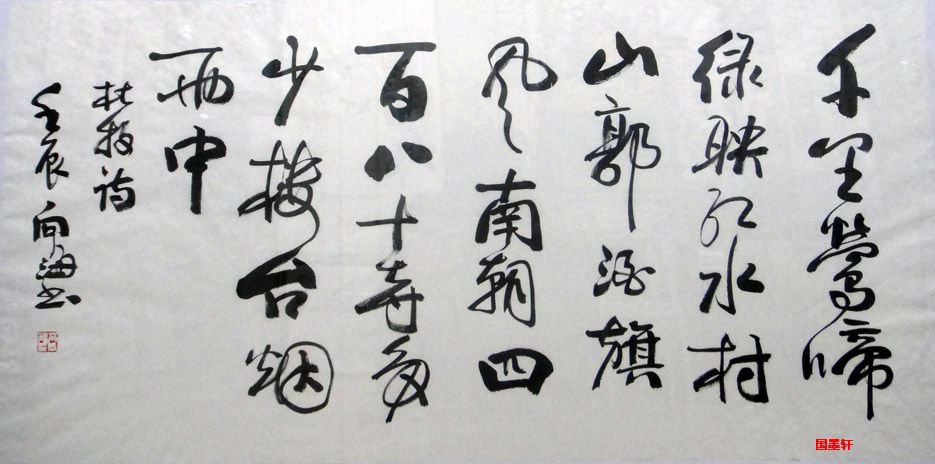 千里鶯啼
绿映红水村
山郭酒旗
风南朝四
百八十寺多
少楼台烟
雨中
杜牧诗
壬辰向海书
国墨轩